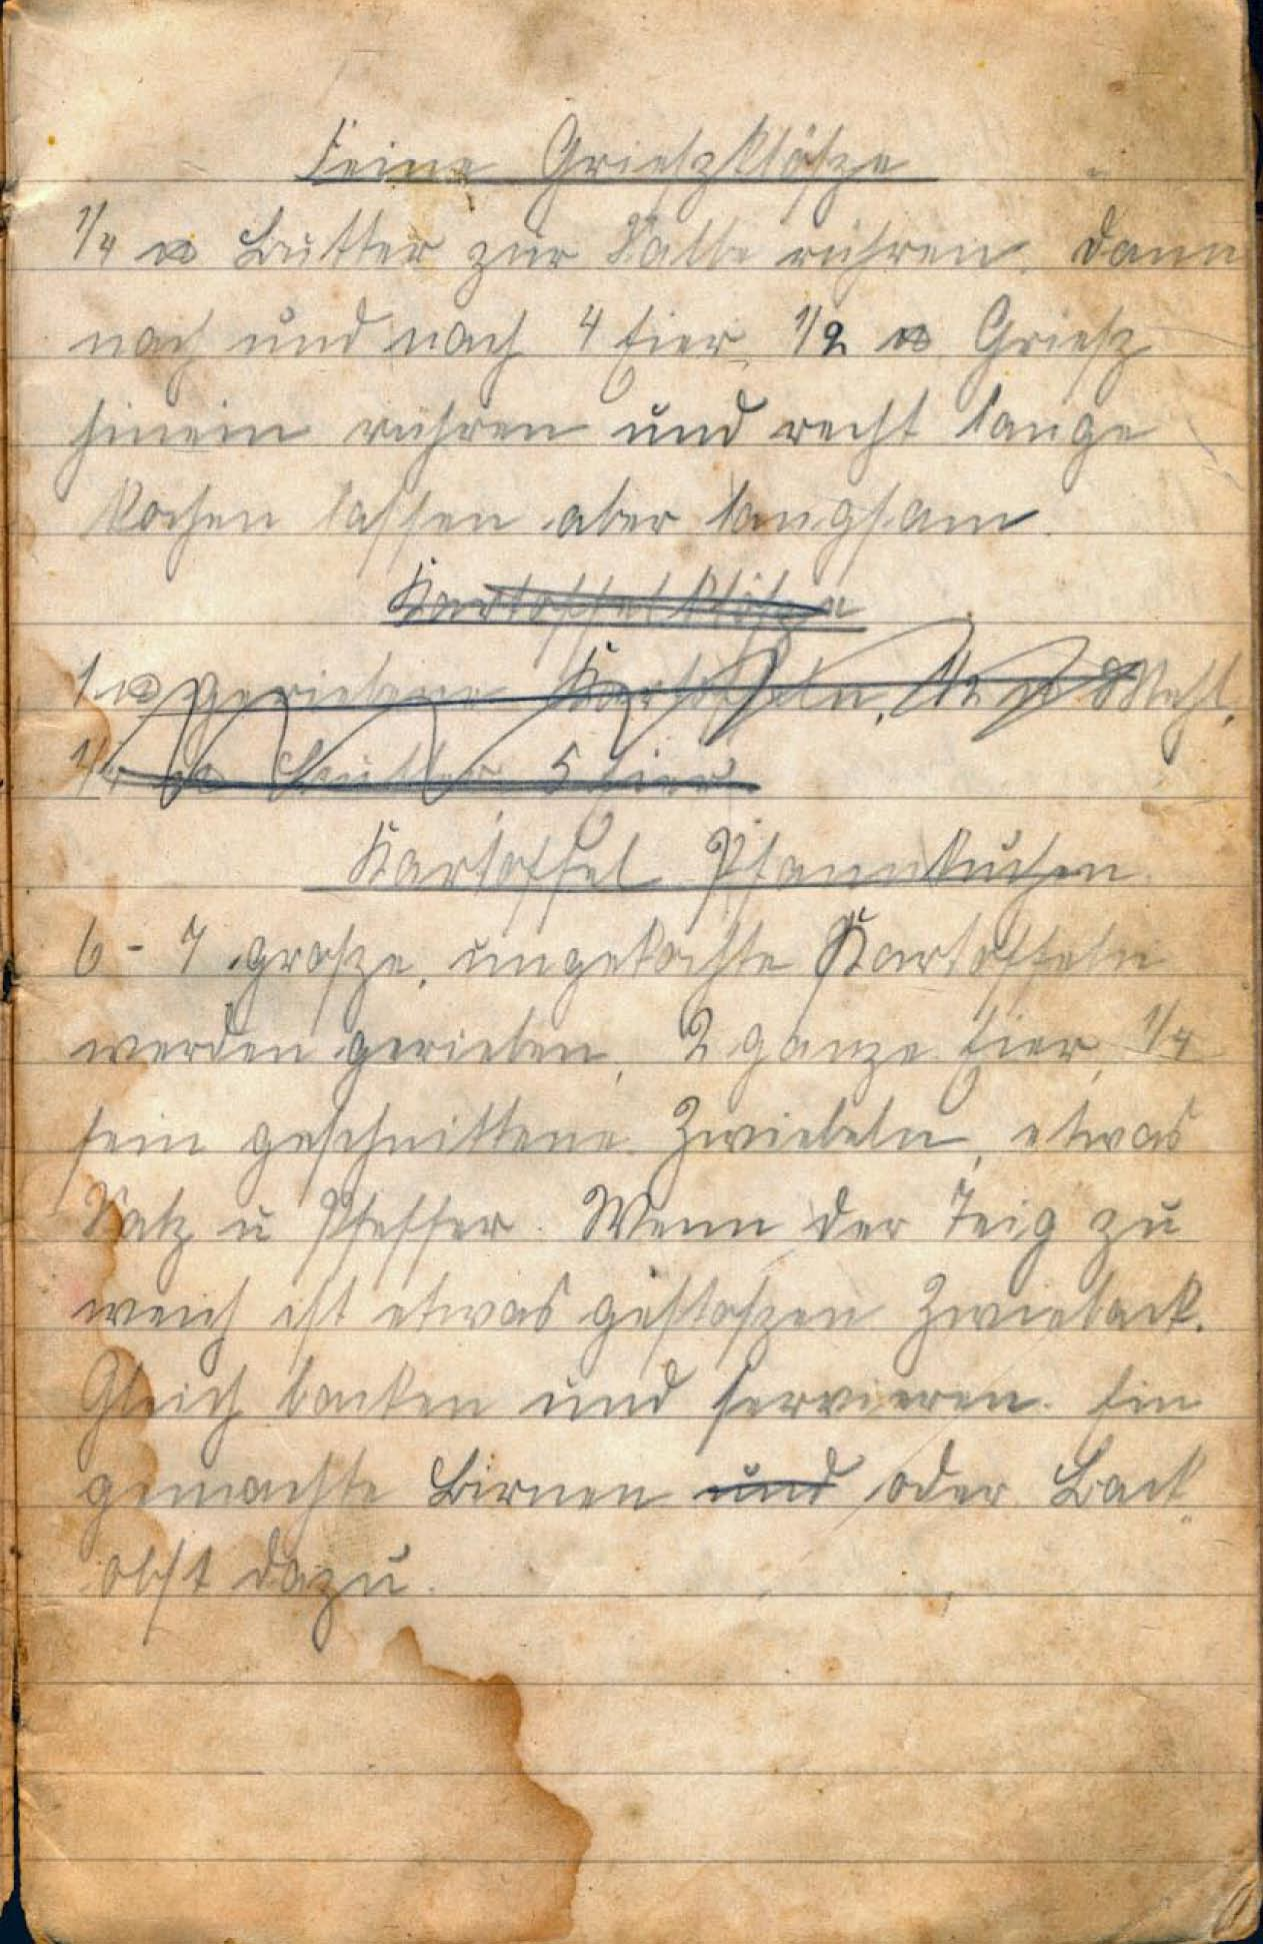 Feine Grieszklösze
1/4 ℔ Butter zur Salbe rühren. Dann
nach und nach 4 Eier, 1/2 ℔ Griesz
hinein rühren und recht lange
kochen lassen aber langsam.
Kartoffelklösze
1 ℔ geriebene Kartoffeln, 1/2 ℔ Mehl,
1/4 ℔ Butter 5 Eier
Kartoffel Pfannkuchen.
6-7 grosze, ungekochte Kartoffeln
werden gerieben, 2 ganze Eier, 1/4
fein geschnittene Zwiebeln, etwas
Salz u Pfeffer. Wenn der Teig zu
weich ist etwas gestoszen Zwieback.
Gleich backen und servieren. Ein
gemachte Birnen und oder Back
obst dazu.